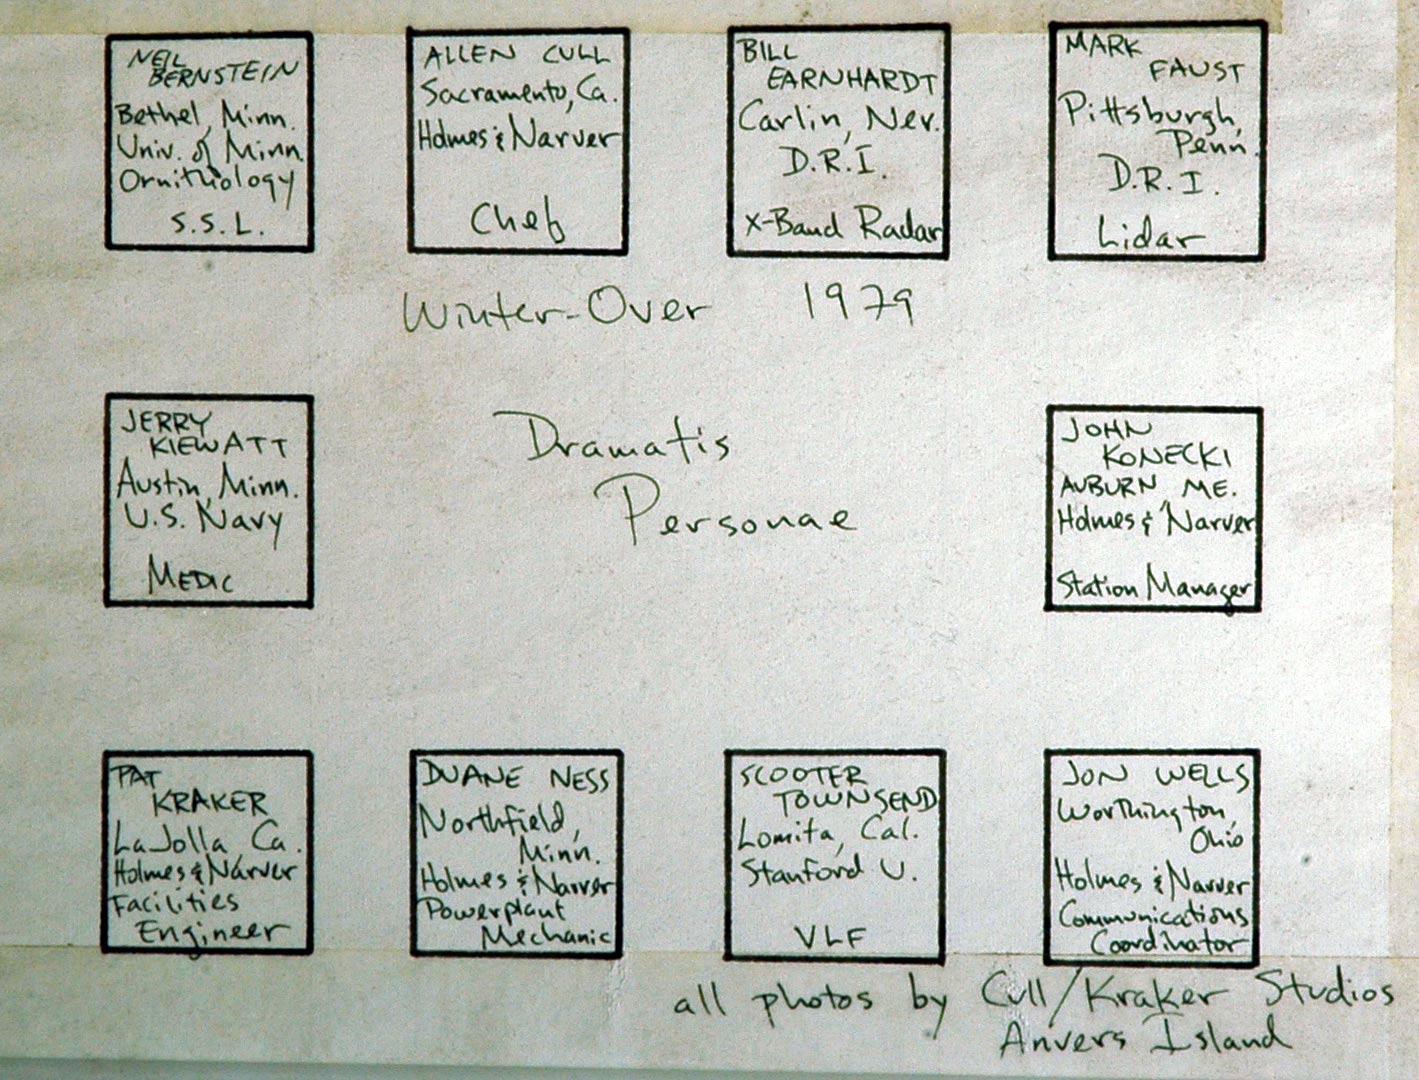 NEIL
BERNSTEIN
Bethel, Minn.
Univ. of Minn.
Ornithology
S.S.L.
ALLEN CULL
Sacramento, Ca.
Holmes & Narver
Chef
BILL
EARNHARDT
Carlin, Nev.
D.R.I.
X-Band Radar
MARK
FAUST
Pittsburgh,
Penn.
D.R.I.
Lidar
Winter-Over 1979
JERRY
KIEWATT
Austin, Minn.
U.S. Navy
MEDIC
Dramatis
Personae
JOHN
KONECKI
AUBURN, ME.
Holmes & Narver
Station Manager
PAT
KRAKER
LaJolla Ca.
Holmes & Narver
Facilities
Engineer
DUANE NESS
Northfield,
Minn.
Holmes & Narver
Powerplant
Mechanic
SCOOTER
TOWNSEND
Lomita, Cal.
Stanford U.
VLF
JON WELLS
Worthington,
Ohio
Holmes & Narver
Communications
Coordinator
all photos by Cull/Kraker Studios
Anvers Island